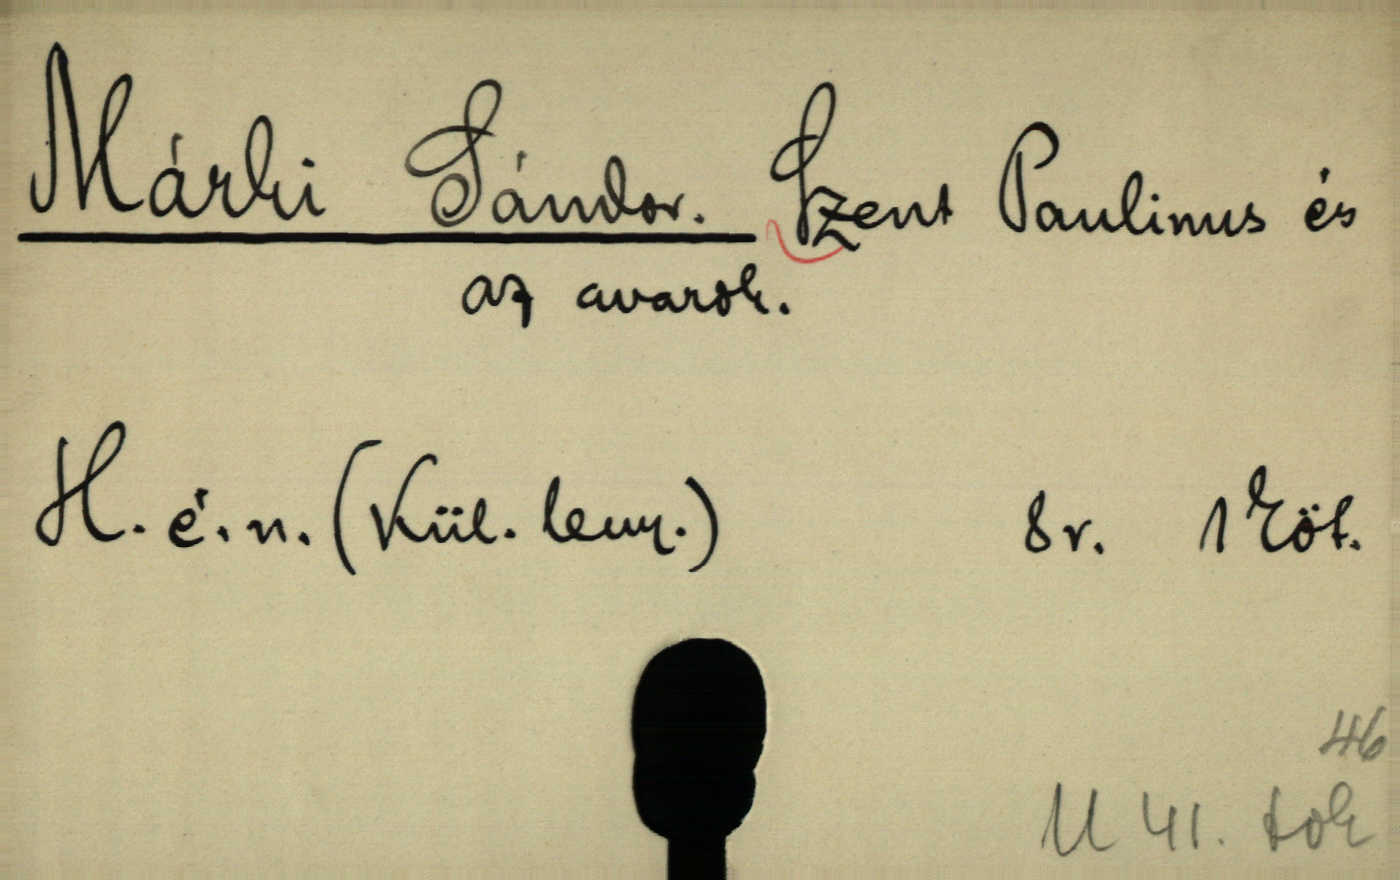 Márki Sándor. Szent Paulinus és
az avarok.
H. é. n. (Kül. leny.) 8r. 1 köt.
46
U 41. tok